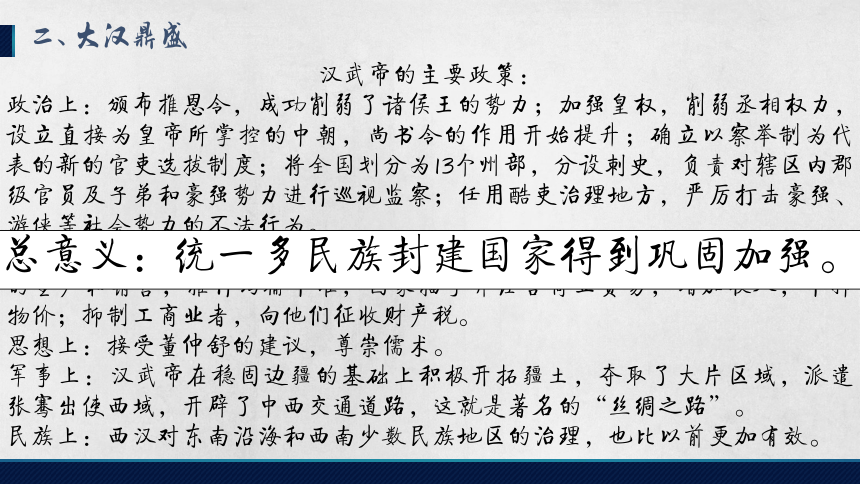 二、大汉鼎盛
汉武帝的主要政策：
政治上：颁布推恩令，成功削弱了诸侯王的势力；加强皇权，削弱丞相权力，
设立直接为皇帝所掌控的中朝，尚书令的作用开始提升；确立以察举制为代
表的新的官吏选拔制度；将全国划分为13个州部，分设刺史，负责对辖区内郡
级官员及子弟和豪强势力进行巡视监察；任用酷吏治理地方，严厉打击豪强、
游侠等社会势力的不法行为。
总意义：统一多民族封建国家得到巩固加强。
物价；抑制工商业者，向他们征收财产税。
思想上：接受董仲舒的建议，尊崇儒术。
军事上：汉武帝在稳固边疆的基础上积极开拓疆土，夺取了大片区域，派遣
张骞出使西域，开辟了中西交通道路，这就是著名的“丝绸之路”。
民族上：西汉对东南沿海和西南少数民族地区的治理，也比以前更加有效。